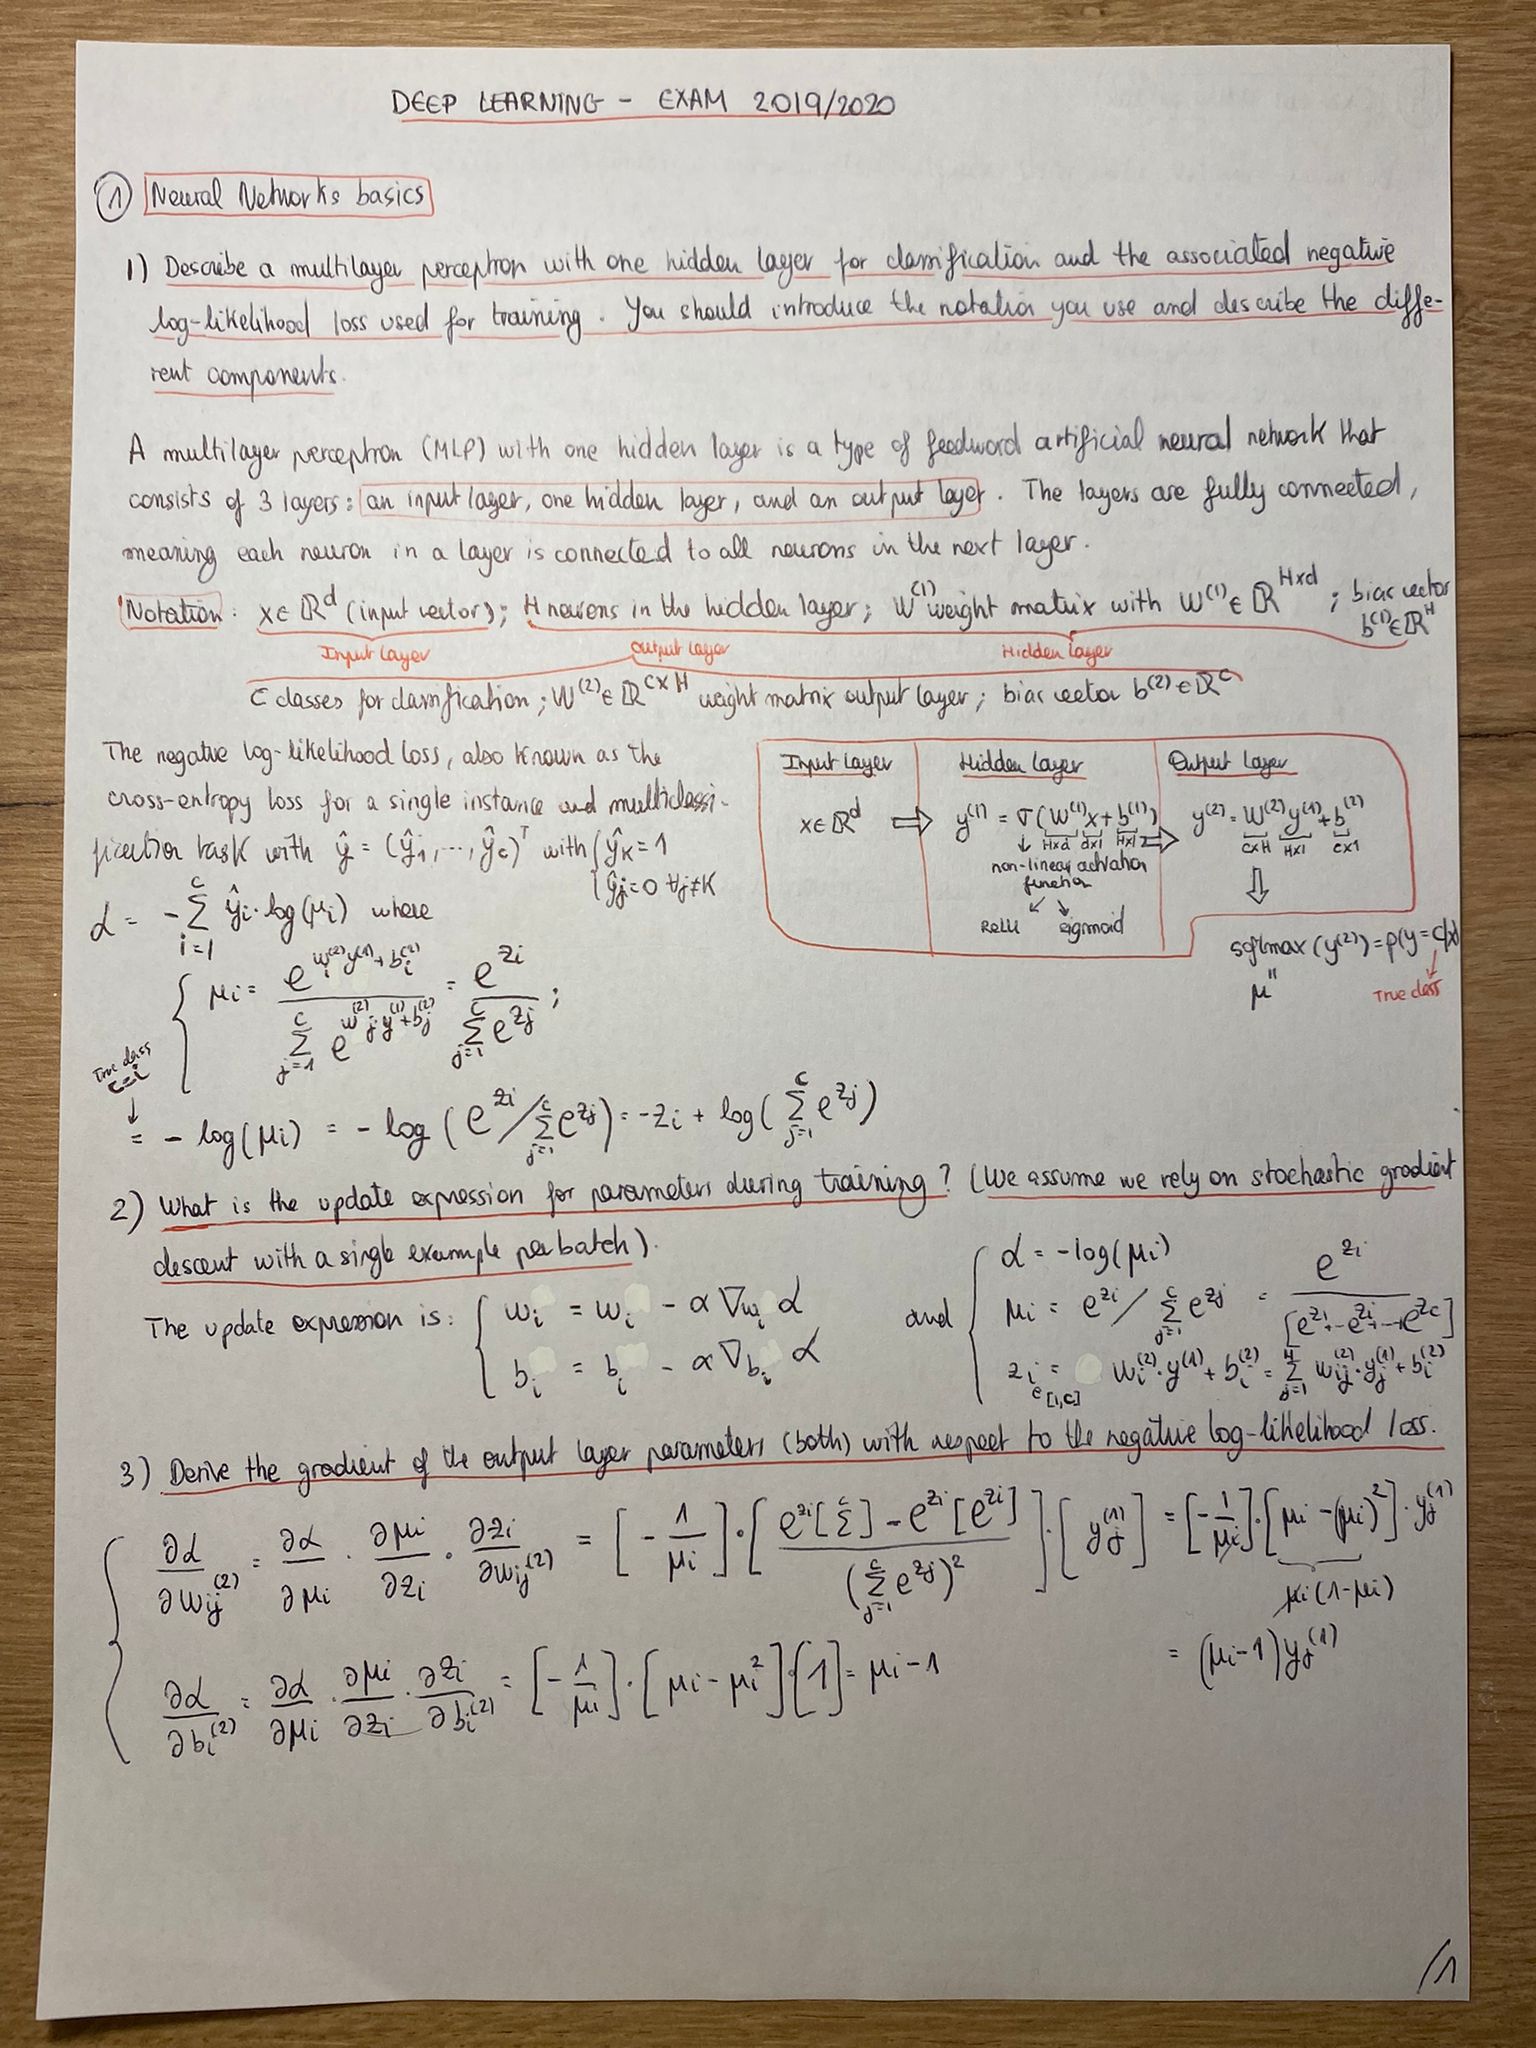 DEEP LEARNING - EXAM 2019/2020
① Neural Networks basics
1) Describe a multilayer perceptron with one hidden layer for classification and the associated negative
log-likelihood loss used for training. You should introduce the notation you use and describe the diffe-
rent components.
A multilayer perceptron (MLP) with one hidden layer is a type of feedword artificial neural network that
consists of 3 layers: an input layer, one hidden layer, and an output layer. The layers are fully connected,
meaning each neuron in a layer is connected to all neurons in the next layer.
Notation: x∈ℝ^d (input vector); H neurons in the hidden layer; W^(1) weight matrix with W^(1)∈ℝ^(H×d); bias vector
b^(1)∈ℝ^H
Input layer Output layer Hidden layer
C classes for classification; W^(2)∈ℝ^(C×H) weight matrix output layer; bias vector b^(2)∈ℝ^C
The negative log-likelihood loss, also known as the
cross-entropy loss for a single instance and multiclassi-
fication task with ŷ = (ŷ_1, ..., ŷ_c)^T with { ŷ_K = 1
ŷ_j = 0 ∀j≠K
L = -∑_{i=1}^{C} ŷ_i · log(μ_i) where
μ_i = e^(w_i^(2) y^(1) + b_i^(2)) / ∑_{j=1}^{C} e^(w_j^(2) y^(1) + b_j^(2)) = e^(z_i) / ∑_{j=1}^{C} e^(z_j) ;
True class
c=i
= - log(μ_i) = - log(e^(z_i) / ∑_{j=1}^{C} e^(z_j)) = -z_i + log(∑_{j=1}^{C} e^(z_j))
Input layer Hidden layer Output layer
x∈ℝ^d ⇒ y^(1) = σ(W^(1)x + b^(1)) ⇒ y^(2) = W^(2)y^(1) + b^(2)
H×d d×1 H×1 C×H H×1 C×1
non-linear activation
function
ReLU sigmoid
softmax(y^(2)) = p(y=c|x)
"
μ
True class
2) What is the update expression for parameters during training? (We assume we rely on stochastic gradient
descent with a single example per batch).
The update expression is: { w_i = w_i - α ∇_{w_i} L
b_i = b_i - α ∇_{b_i} L
and { L = -log(μ_i)
μ_i = e^(z_i) / ∑_{j=1}^{C} e^(z_j) = e^(z_i) / [e^(z_1)+...e^(z_i)+...+e^(z_C)]
z_i = w_i^(2) · y^(1) + b_i^(2) = ∑_{j=1}^{H} w_ij^(2) · y_j^(1) + b_i^(2)
∈[1,C]
3) Derive the gradient of the output layer parameters (both) with respect to the negative log-likelihood loss.
∂L/∂w_ij^(2) = ∂L/∂μ_i · ∂μ_i/∂z_i · ∂z_i/∂w_ij^(2) = [-1/μ_i] · [(e^(z_i)[∑^C] - e^(z_i)[e^(z_i)]) / (∑_{j=1}^{C} e^(z_j))^2] · [y_j^(1)] = [-1/μ_i] · [μ_i - (μ_i)^2] · y_j^(1)
μ_i(1-μ_i)
= (μ_i - 1) y_j^(1)
∂L/∂b_i^(2) = ∂L/∂μ_i · ∂μ_i/∂z_i · ∂z_i/∂b_i^(2) = [-1/μ_i] · [μ_i - μ_i^2] · [1] = μ_i - 1
/1